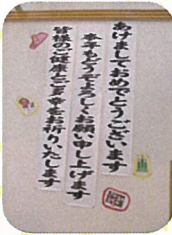 あけましておめでとうございます
本年もどうぞよろしくお願い申し上げます
皆様のご健康とご多幸をお祈りいたします